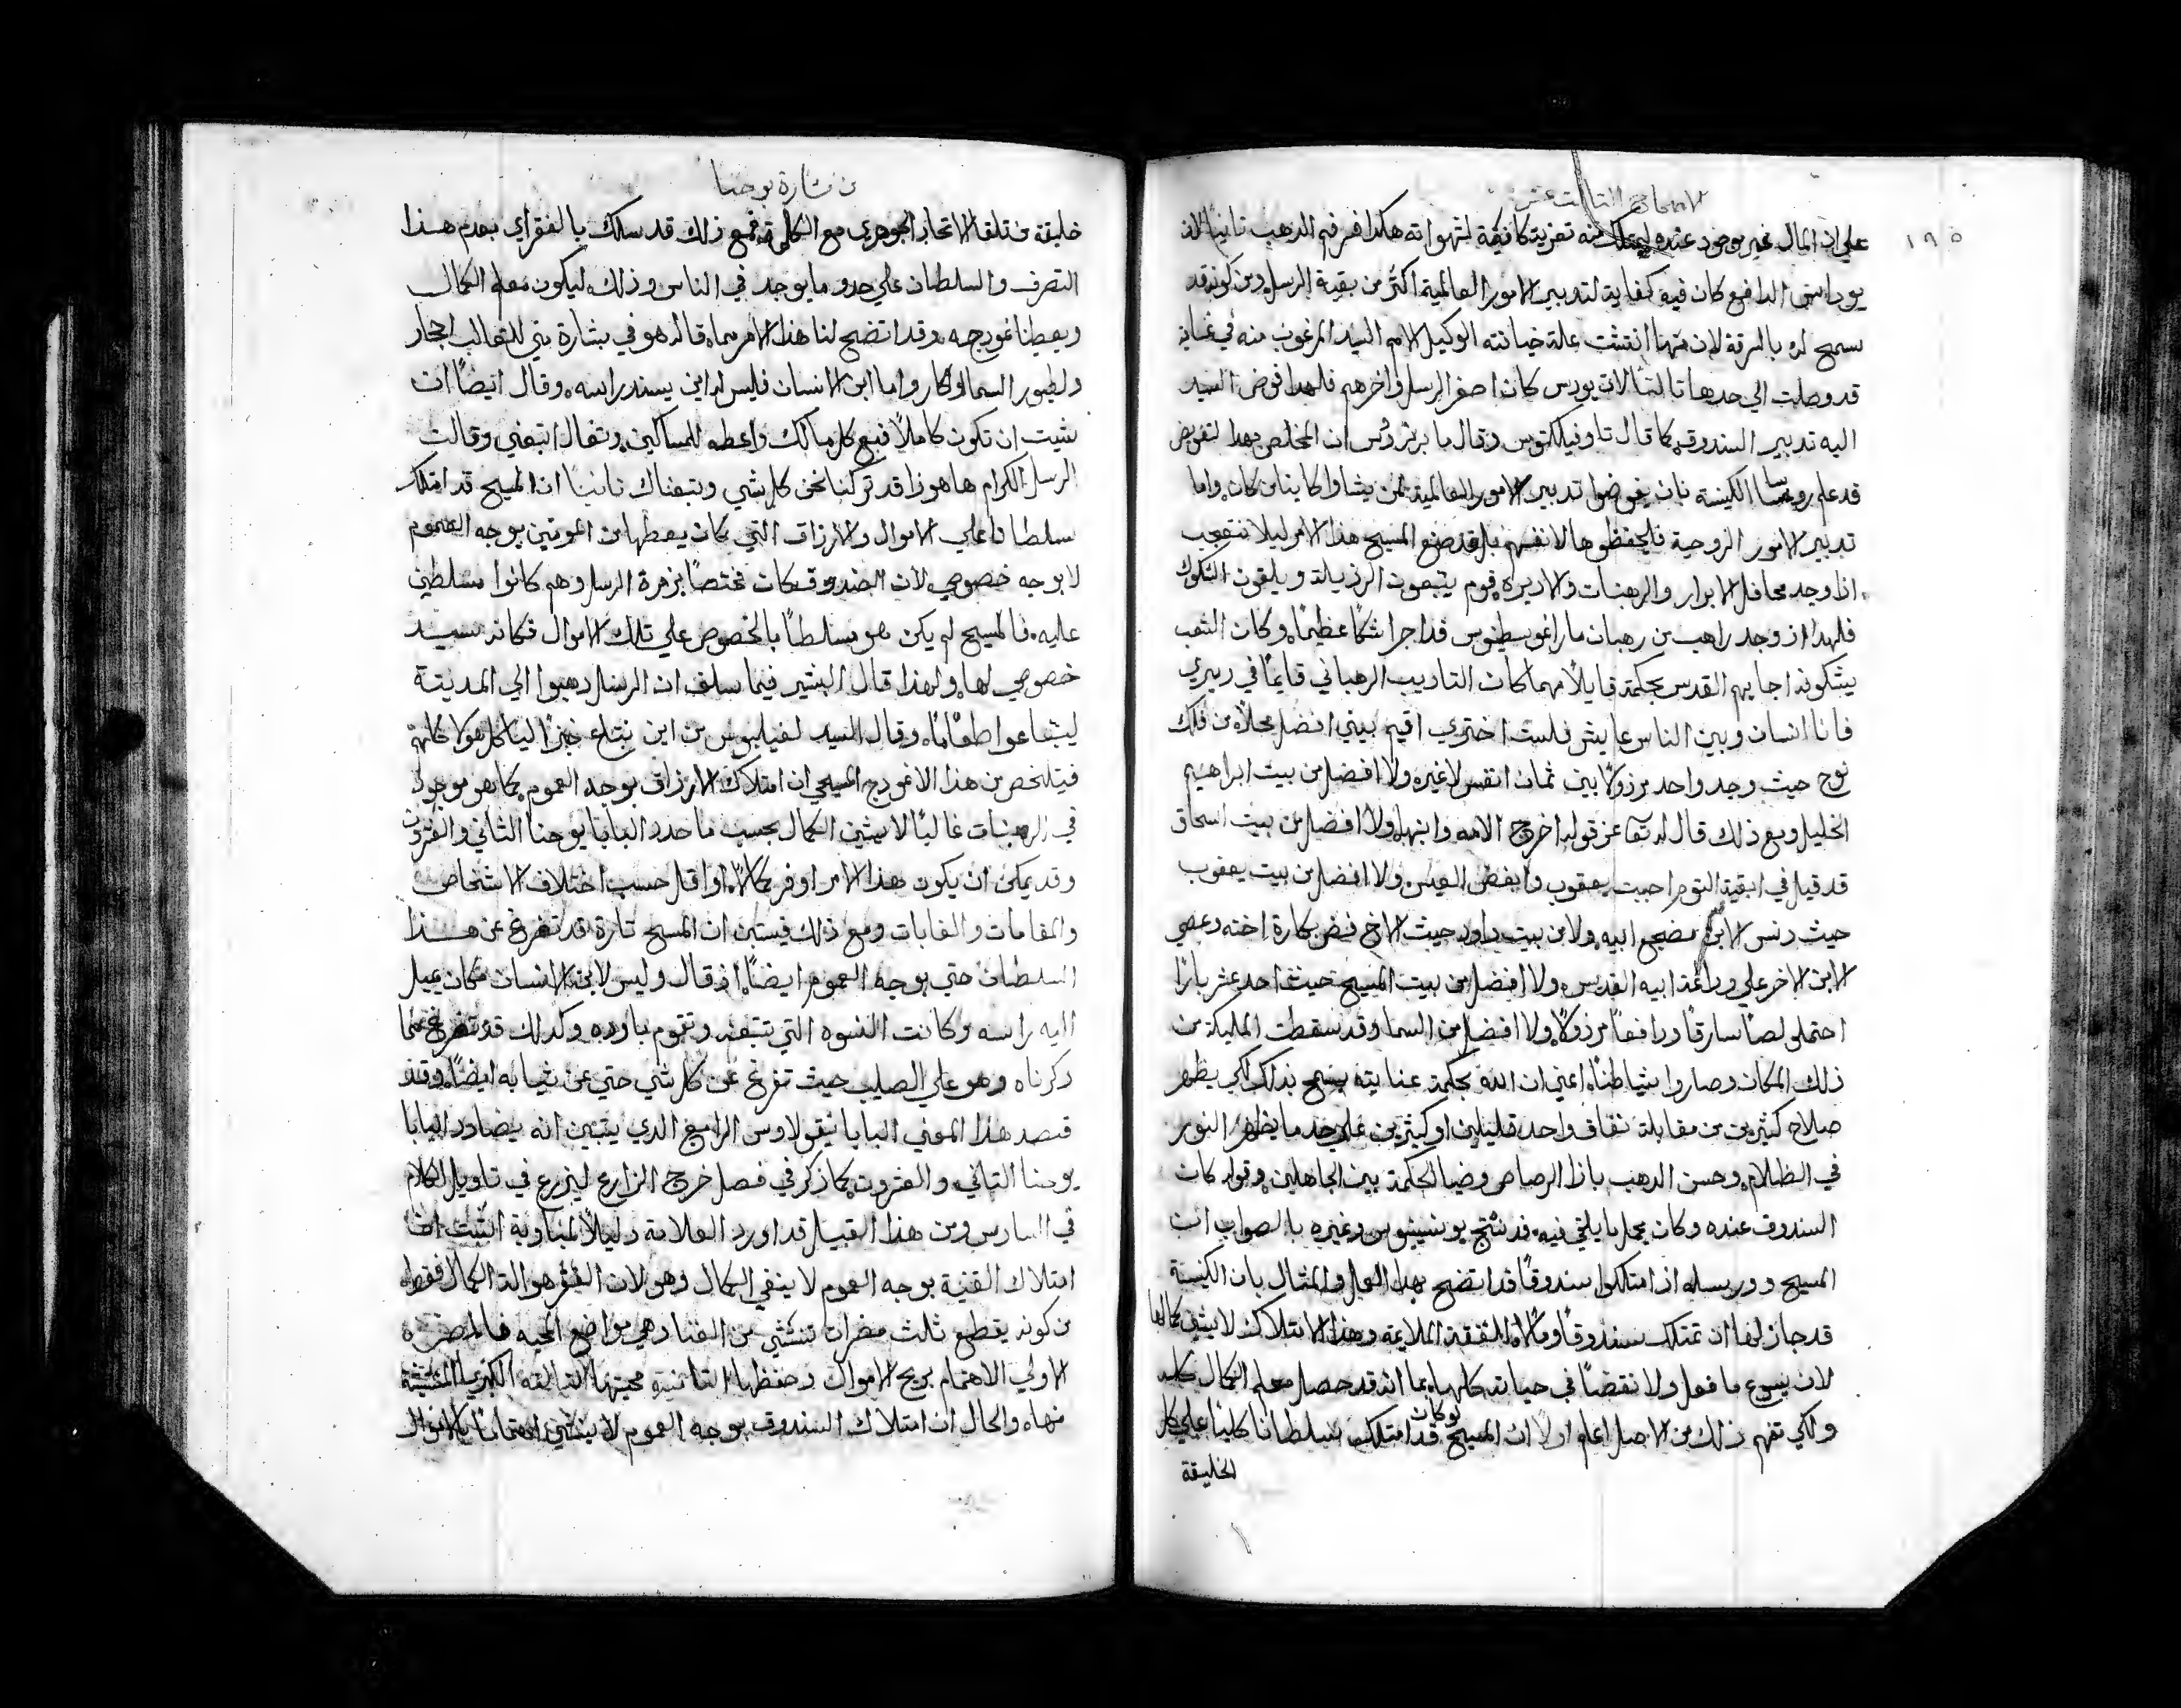 الاصحاح الثالث عشر
١٩٥
علي ان المال غير موجود عنده ليمتلك منه تعزية كافية لشهواته هكذا فم الذهب ثانياً لان
يوداس الدافع كان فيه كفاية لتدبير الامور العالمية اكثر من بقية الرسل ومن كونه قد
سمح له بالسرقة لان منها انتشت علة خيانته الوكيل الامر السيد المرغوب منه في غاية
قد وصلت الي حدها ثالثا لان يودس كان اصغر الرسل واخرهم فلهذا فوض السيد
اليه تدبير السندوق كما قال تاوفيلكتوس وقال ان المخلص بهذا التفويض
قد علم روسا الكنيسة بان يفوضوا تدبير الامور العالمية لمن يشاوا كاينا من كان واما
تدبير الامور الروحية فليحفظوها لانفسهم بل قد صنع المسيح هذا الامر ليلا نتعجب
اذا وجد محافل الابرار والرهبنات والاديره قوم يتبعون الرذيلة ويلقون الشكوك
فلهذا اذ وجد راهب من رهبان مار اغوسطينوس قد اجرا شكاً عظيماً وكان الشعب
يشكونه اجابهم القديس بحكمة قايلاً مهما كان التاديب الرهباني قايماً في ديري
فانا انسان وبين الناس عايش فلست اجتري اقيم بيتي افضل محلاً من فلك
نوح حيث وجد واحد مرذولاً بين ثمان انفس لا غيره ولا افضل من بيت ابراهيم
الخليل ومع ذلك قال له تعا عز قوله اخرج الامه وابنها ولا افضل من بيت اسحاق
قد قيل في ابنيه التوم احببت يعقوب وابغضت العيس ولا افضل من بيت يعقوب
حيث دنس الابن مضجع ابيه ولا من بيت داود حيث الاخ فض بكارة اخته وعصي
الابن الاخر علي وداعة ابيه القديس ولا افضل من بيت المسيح حيث احد عشر باراً
احتملوا لصاً سارقاً ودافعاً مرذولاً ولا افضل من السما وقد سقطت المليكة من
ذلك المكان وصاروا شياطناً اعني ان الله بحكمة عنايته يسمح بذلك لكي يظهر
صلاح كثيرين من مقابلة نفاق واحد قليلين او كثيرين علي حد ما يظهر النور
في الظلام وحسن الذهب بازا الرصاص وضيا الحكمة بين الجاهلين وقوله كان
السندوق عنده وكان يحمل ما يلقي فيه قد نتج يونسينيوس وغيره بالصواب ان
المسيح ورسله اذ امتلكوا سندوقاً قد اتضح بهذا العمل والمثال بان الكنيسة
قد جاز لها ان تمتلك سندوقاً ومالاً للنفقة الملايمة وهذا الامتلاك لا يشين كمالها
لان يسوع ما فعل ولا نقصاً في حياته كلها بما انه قد حصل معلم الكمال كله
ولكي تفهم ذلك من الاصل اعلم اولاً ان المسيح ولو كان قد امتلك سلطاناً كلياً علي كل
الخليقة
من بشارة يوحنا
خليقة من تلقا الاتحاد الجوهري مع الكلمة فمع ذلك قد سلك بالفقر اي بعدم هذا
التصرف والسلطان علي حدو ما يوجد في الناس وذلك ليكون معلم الكمال
ويعطينا نموذجه وقد اتضح لنا هذا الامر مما قاله هو في بشارة متي للثعالب اجحار
ولطيور السما اوكار واما ابن الانسان فليس له اين يسند راسه وقال ايضاً ان
شيت ان تكون كاملاً فبع كل مالك واعطه للمساكين وتعال اتبعني وقالت
الرسل الكرام ها هوذا قد تركنا نحن كل شي وتبعناك ثانياً ان المسيح قد امتلك
سلطاناً علي الاموال والارزاق التي كان يعطها من المومنين بوجه العموم
لا بوجه خصوصي لان الصندوق كان مختصاً بزمرة الرسل وهم كانوا مسلطين
عليه فالمسيح لم يكن هو مسلطاً بالخصوص علي تلك الاموال فكانه سيد
خصوصي لها ولهذا قال البشير فيما سلف ان الرسل ذهبوا الي المدينة
ليبتاعوا طعاماً وقال السيد لفيلبوس من اين نبتاع خبزاً لياكل هولا فانهم
فيتلخص من هذا الانموذج المسيحي ان امتلاك الارزاق بوجه العموم كما هو موجود
في الرهبنات غالباً لا يشين الكمال بحسب ما حدد البابا يوحنا الثاني والعشرون
وقد يمكن ان يكون هذا الامر اوفر كمالاً او اقل حسب اختلاف الاشخاص
والمقامات والغايات ومع ذلك فيستبين ان المسيح تارة قد تفرغ عن هذا
السلطان حتي بوجه العموم ايضاً اذ قال وليس لابن الانسان مكان يميل
اليه راسه وكانت النسوه التي تتبعه وتقوم باوده وكذلك قد تفرغ عما
ذكرناه وهو علي الصليب حيث تفرغ عن كل شي حتي عن ثيابه ايضاً وقد
قصد هذا المعني البابا نيقولاوس الرابع الذي يتبين انه يضادد البابا
يوحنا الثاني والعشرون كما ذكر في فصل خرج الزارع ليزرع في تاويل الكلام
في السادس ومن هذا القبيل قد اورد العلامة دليلاً المثبت ان
امتلاك القنية بوجه العموم لا ينفي الكمال وهو لان الفقر هو الة الكمال فقط
من كونه يقطع ثلث مضرات تنتشي من الغنا وهي موانع المحبه فالمضره
الاولي الاهتمام بربح الاموال وحفظها الثانية محبتها الثالثة الكبريا المنتشية
منها والحال ان امتلاك السندوق بوجه العموم لا ينشي اهتماماً بالاموال